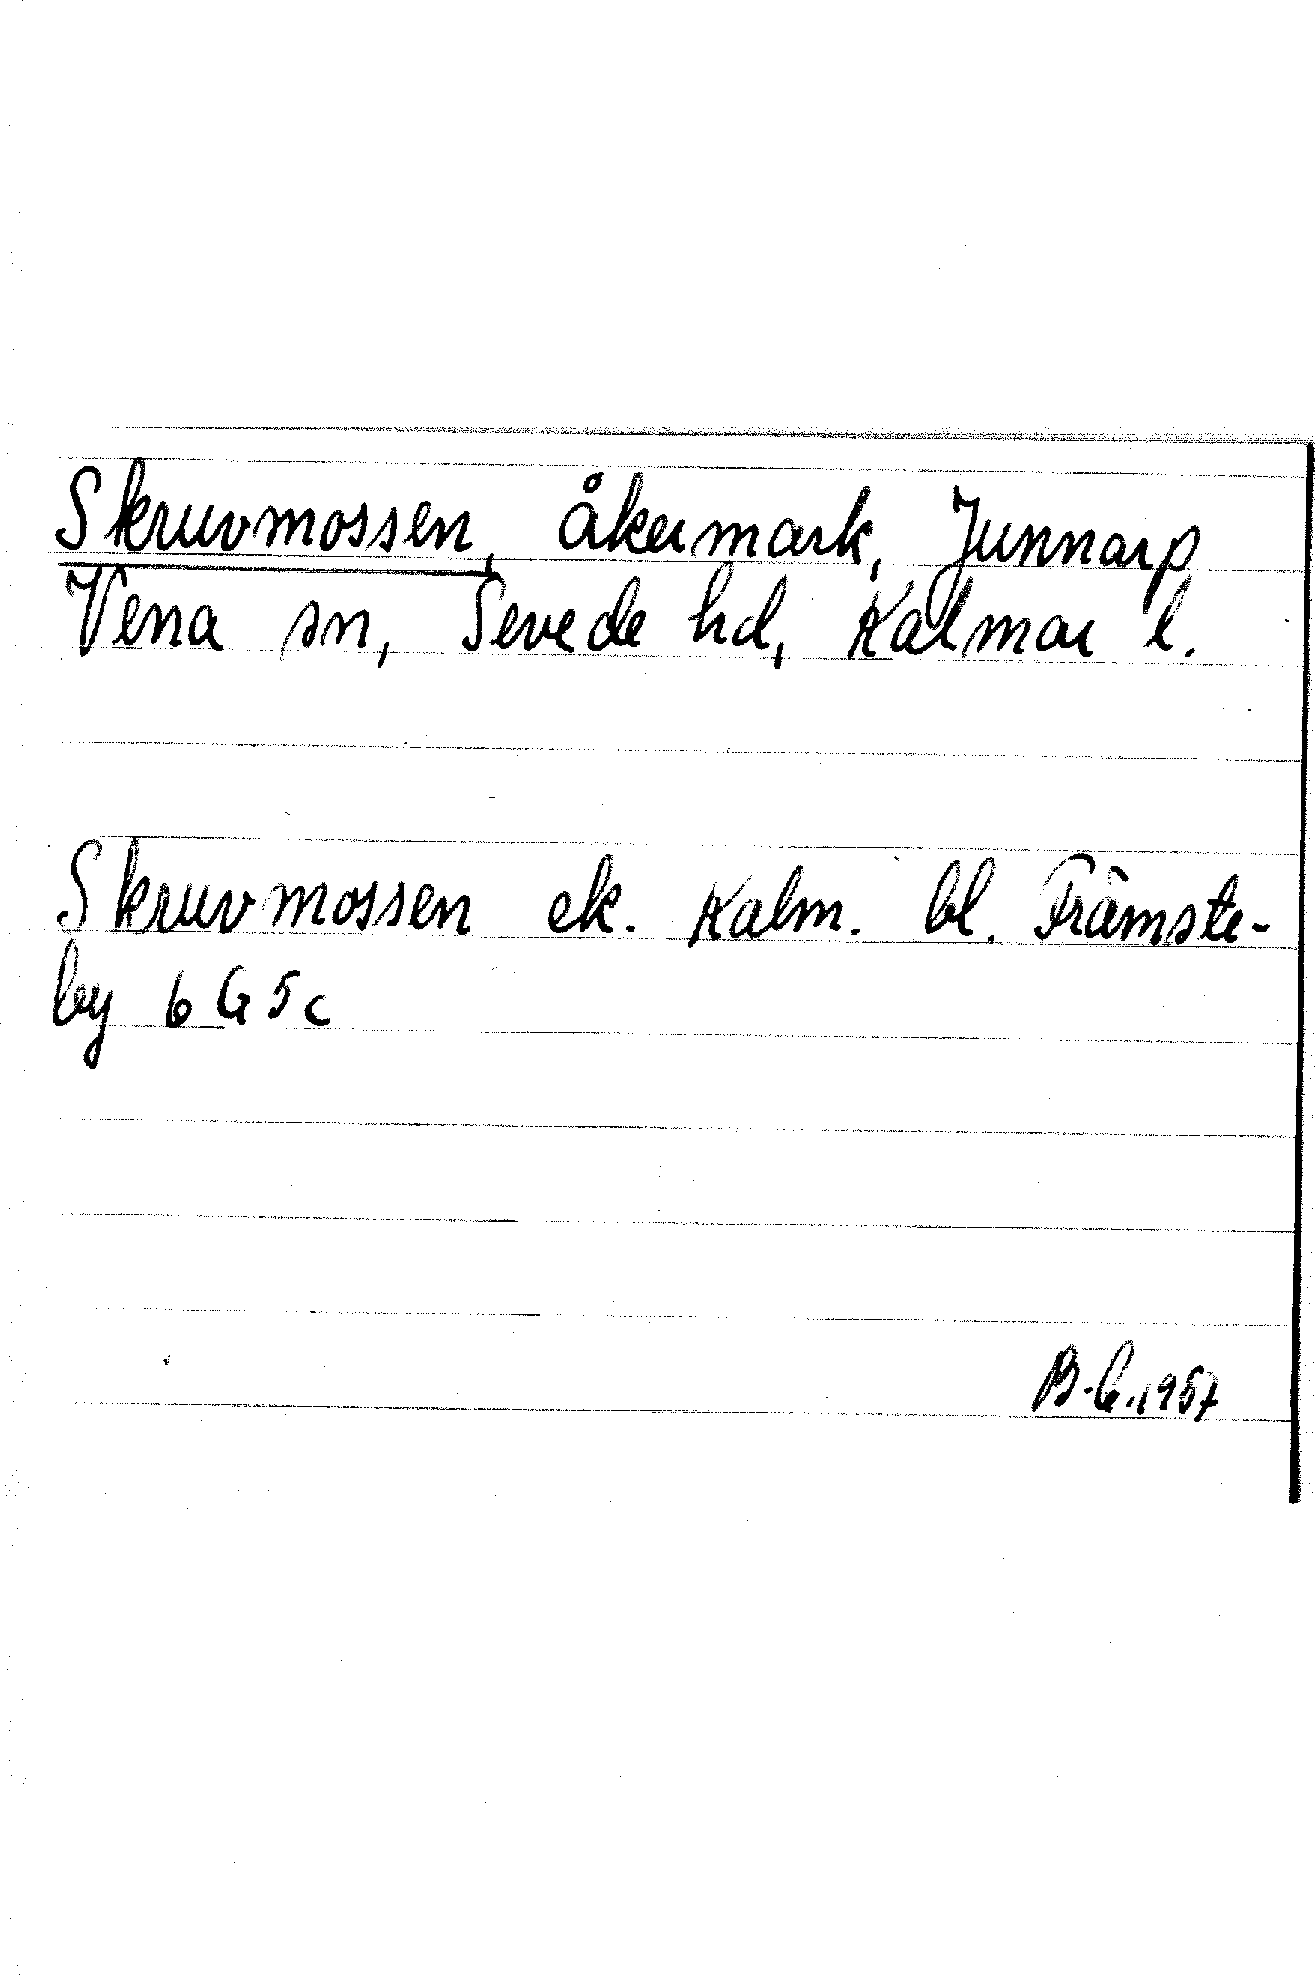 Skruvmossen, åkermark, Junnarp
Vena sn, Sevede hd, Kalmar l.
Skruvmossen ek. Kalm. bl. Främste-
by 6 G 5 c
B-G. 1957